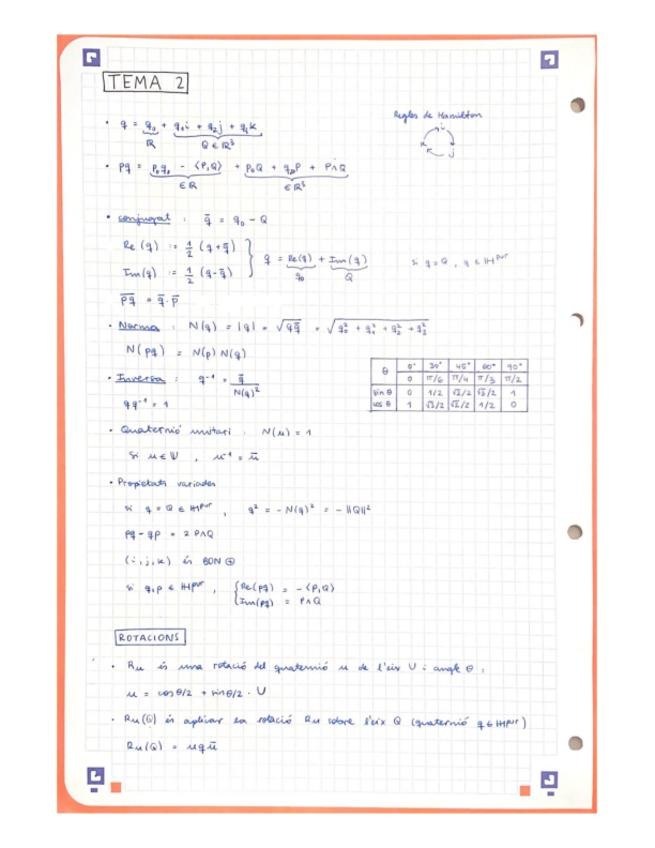 TEMA 2
Regles de Hamilton
i
k j
• q = q₀ + q₁i + q₂j + q₃k
ℝ Q ∈ ℝ³
• pq = p₀q₀ - ⟨P,Q⟩ + p₀Q + q₀P + P∧Q
∈ ℝ ∈ ℝ³
• conjugat : q̅ = q₀ - Q
Re(q) := 1/2 (q+q̅)
Im(q) := 1/2 (q-q̅)
q = Re(q) + Im(q)
q₀ Q
si q = Q, q ∈ ℍᵖᵘʳ
p̅q̅ = q̅·p̅
• Norma : N(q) = |q| = √qq̅ = √q₀² + q₁² + q₂² + q₃²
N(pq) = N(p) N(q)
• Inversa : q⁻¹ = q̅ / N(q)²
qq⁻¹ = 1
θ 0° 30° 45° 60° 90°
0 π/6 π/4 π/3 π/2
sin θ 0 1/2 √2/2 √3/2 1
cos θ 1 √3/2 √2/2 1/2 0
• Quaternió unitari : N(u) = 1
Si u ∈ 𝕌, u⁻¹ = u̅
• Propietats variades
si q = Q ∈ ℍᵖᵘʳ, q² = -N(q)² = -||Q||²
pq - qp = 2 P∧Q
(i,j,k) és BON ⊕
si q,p ∈ ℍᵖᵘʳ, { Re(pq) = -⟨P,Q⟩
Im(pq) = P∧Q
ROTACIONS
• Ru és una rotació del quaternió u de l'eix U i angle θ :
u = cosθ/2 + sinθ/2 · U
• Ru(Q) és aplicar la rotació Ru sobre l'eix Q (quaternió q ∈ ℍᵖᵘʳ)
Ru(Q) = uqu̅